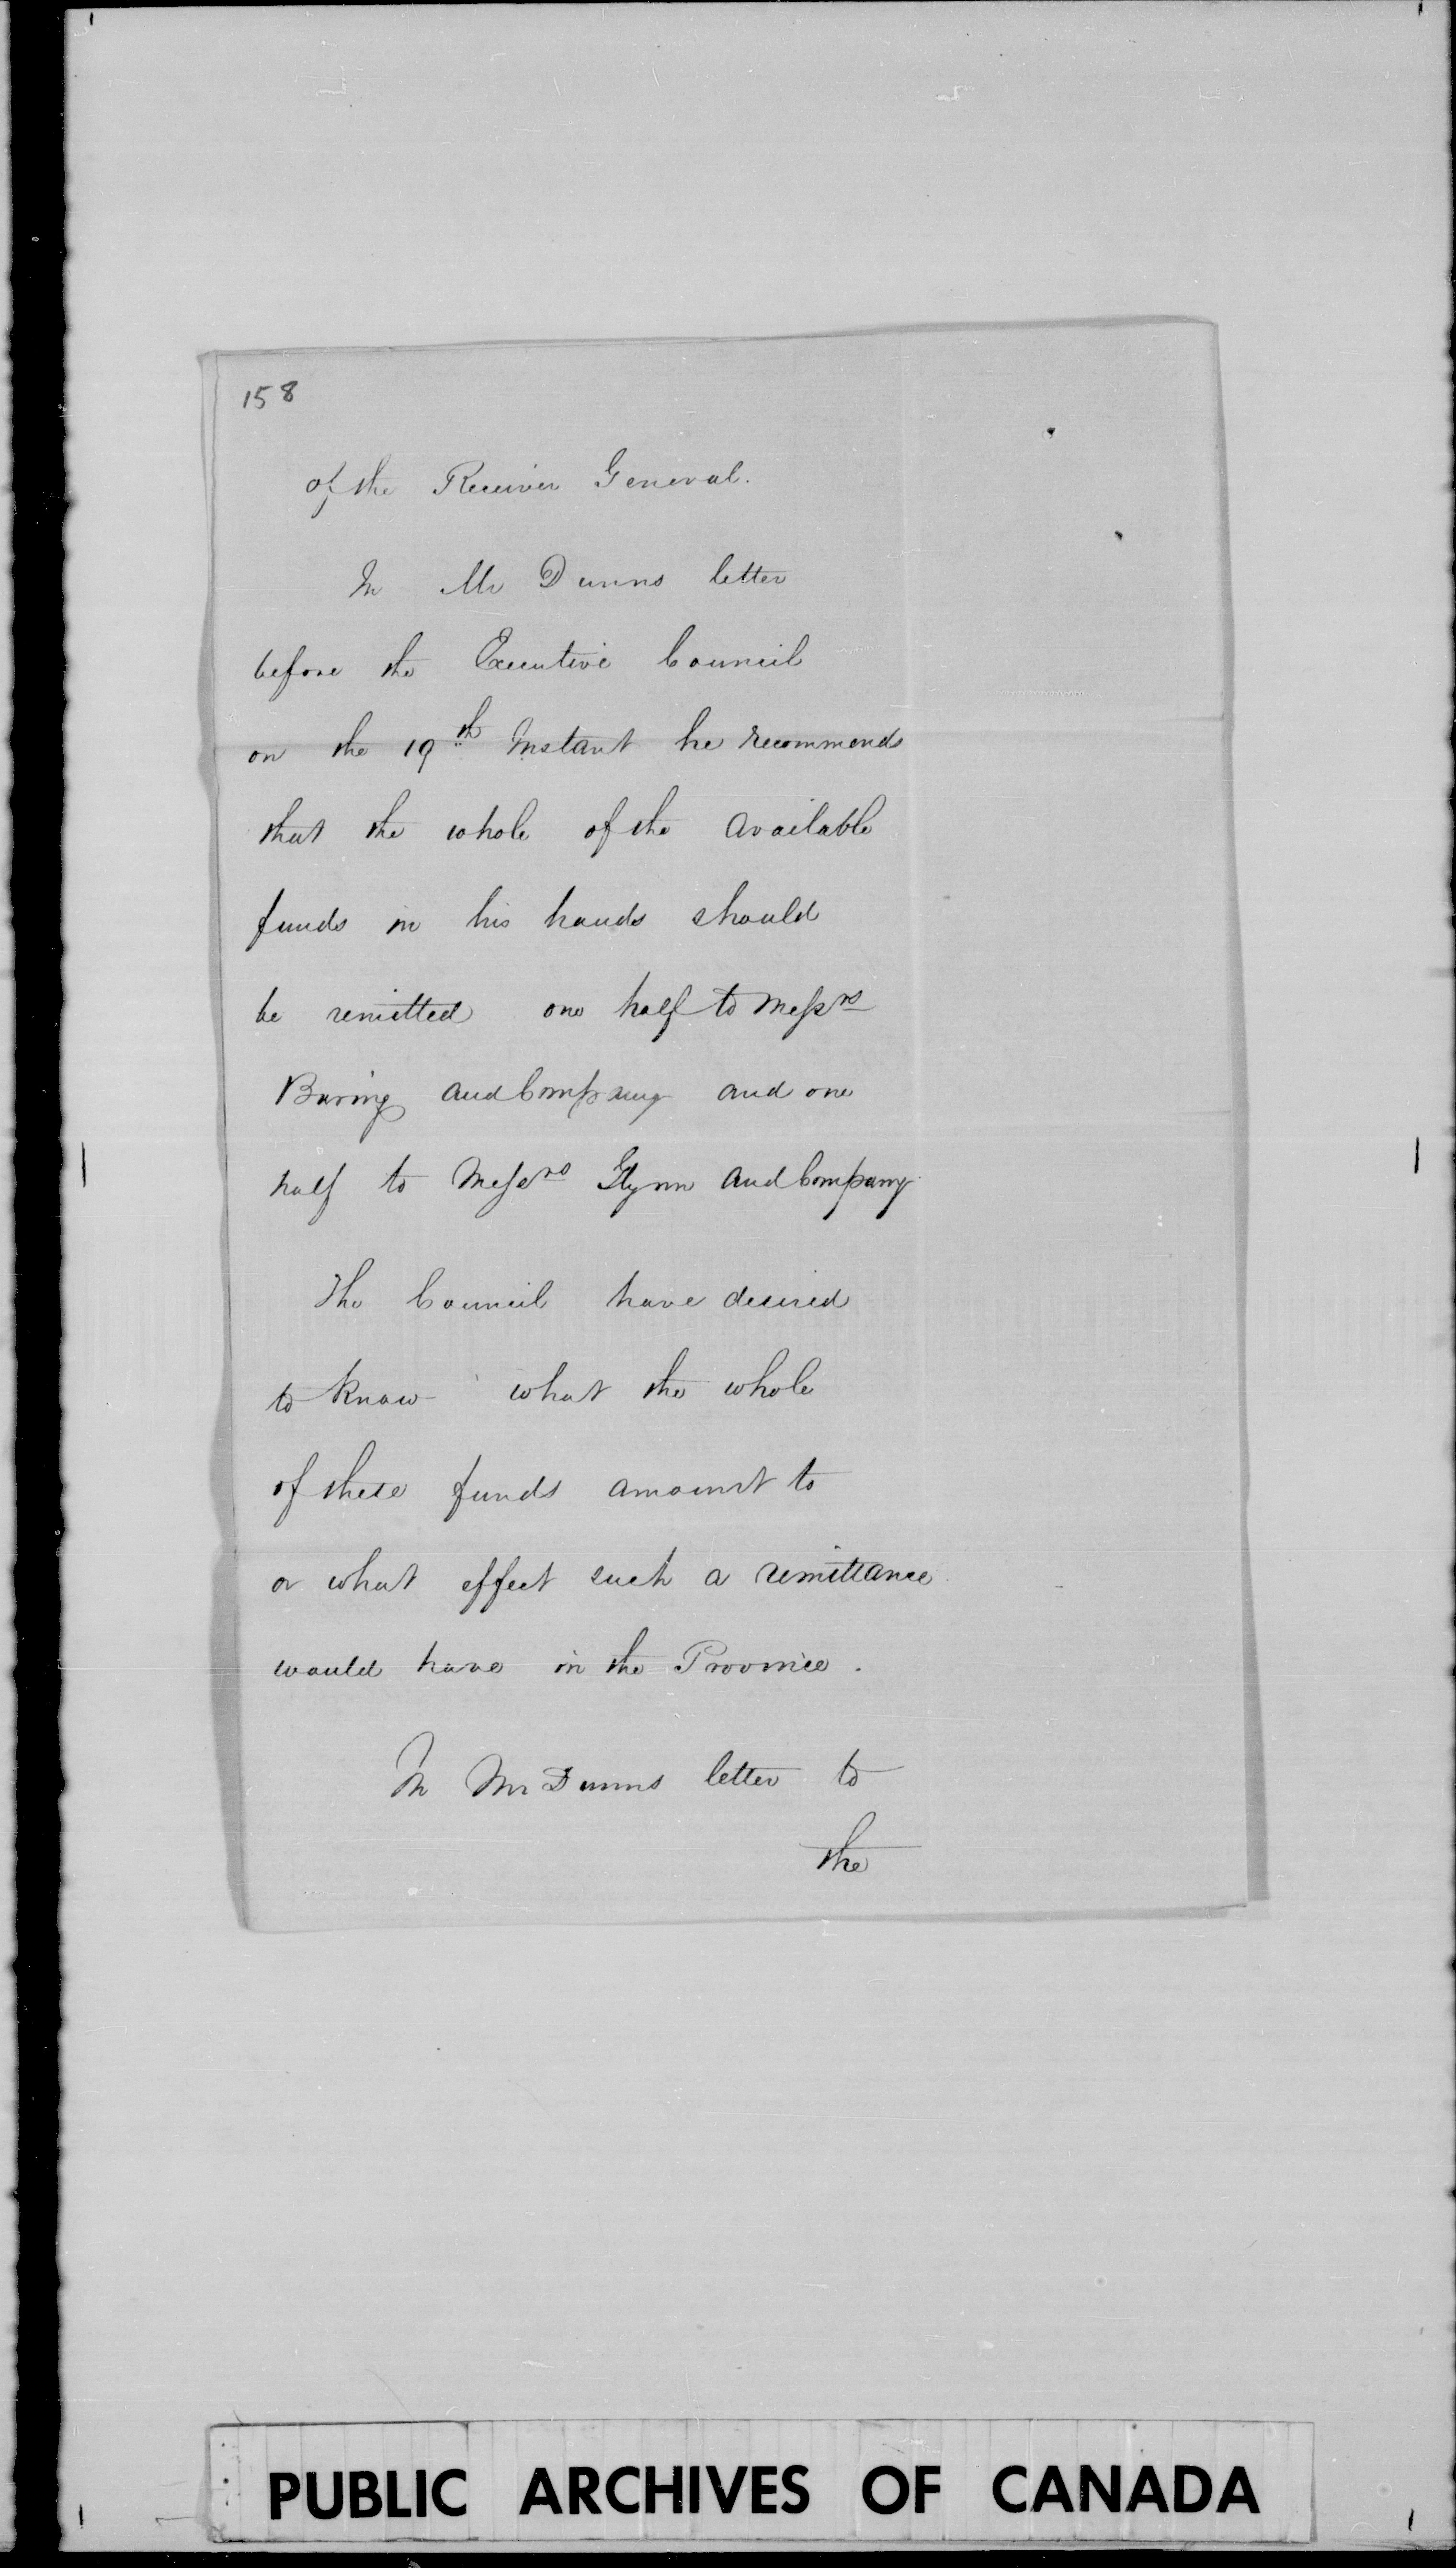 158
of the Receiver General.
In Mr Dunns letter
before the Executive Council
on the 19th Instant he recommends
that the whole of the available
funds in his hands should
be remitted one half to Messrs
Baring and Company and one
half to Messrs Glynn and Company
The Council have desired
to know what the whole
of these funds amount to
or what effect such a remittance
would have in the Province.
In Mr Dunns letter to
the
PUBLIC ARCHIVES OF CANADA